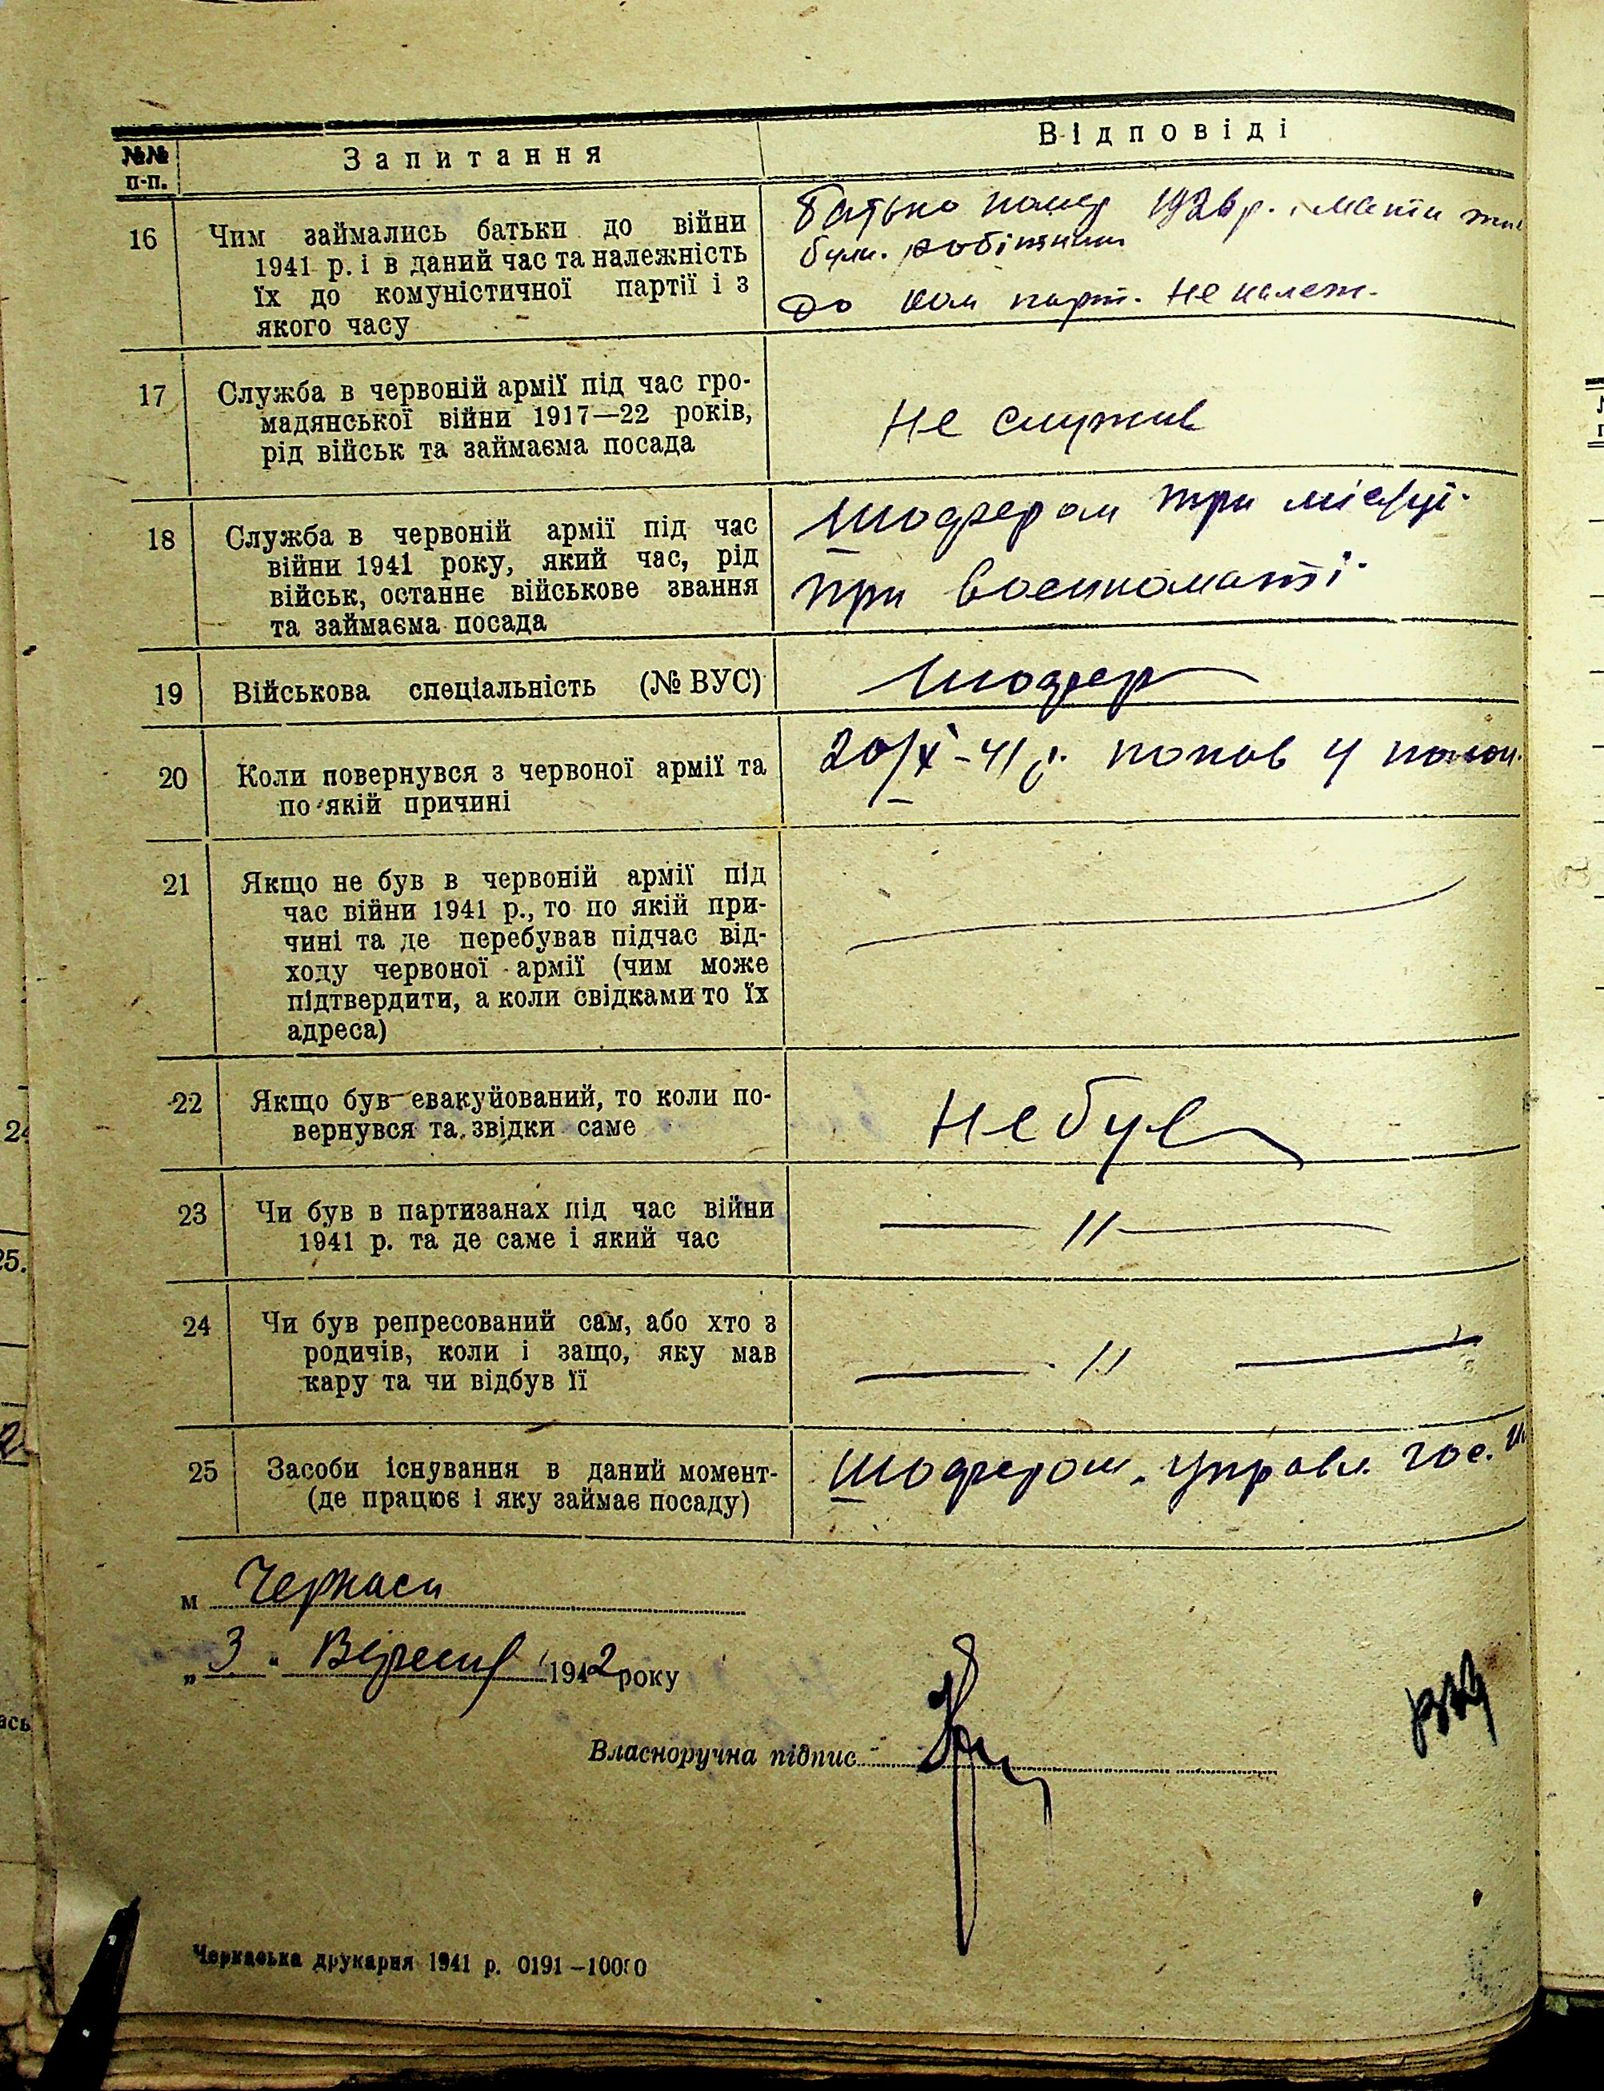 №№ п-п.
Запитання
Відповіді
16
Чим займались батьки до війни
1941 р. і в даний час та належність
їх до комуністичної партії і з
якого часу
Батько помер 1926 р. мати
були робітники
до ком парт. не належ.
17
Служба в червоній армії під час гро-
мадянської війни 1917—22 років,
рід військ та займаєма посада
Не служив
18
Служба в червоній армії під час
війни 1941 року, який час, рід
військ, останнє військове звання
та займаєма посада
Шофером три місяці
при военкоматі
19
Військова спеціальність (№ ВУС)
Шофер
20
Коли повернувся з червоної армії та
по якій причині
20/X-41 р. попав у полон.
21
Якщо не був в червоній армії під
час війни 1941 р., то по якій при-
чині та де перебував підчас від-
ходу червоної армії (чим може
підтвердити, а коли свідками то їх
адреса)
22
Якщо був евакуйований, то коли по-
вернувся та звідки саме
Не був
23
Чи був в партизанах під час війни
1941 р. та де саме і який час
— // —
24
Чи був репресований сам, або хто з
родичів, коли і защо, яку мав
кару та чи відбув її
— // —
25
Засоби існування в даний момент-
(де працює і яку займає посаду)
Шофером. управл. гос.
м Черкаси
„ 3 " Вересня 1942 року
Власноручна підпис
Черкаська друкарня 1941 р. 0191—10000